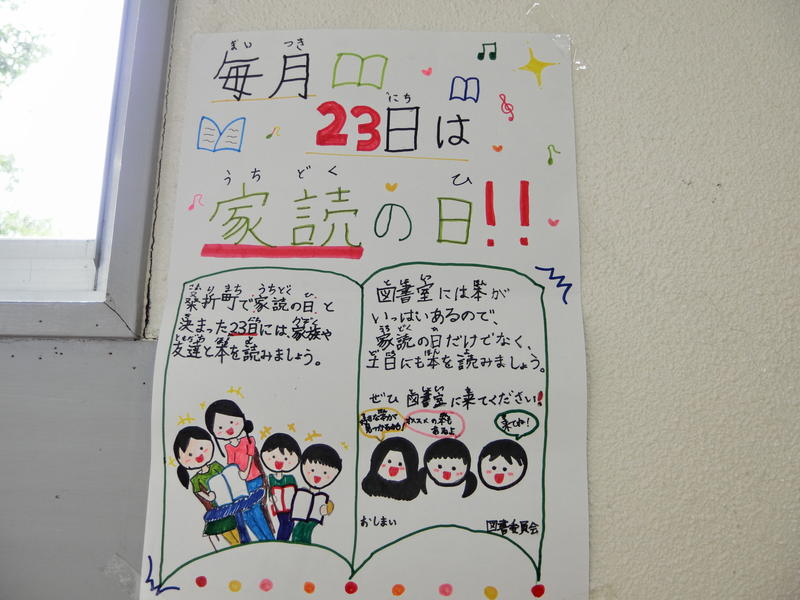 まい つき
毎月
にち
23日は
うち どく ひ
家読の日!!
桑折町で家読の日と
決まった23日には、家族や
友達と本を読みましょう。
図書室には本が
いっぱいあるので、
家読の日だけでなく、
土日にも本を読みましょう。
ぜひ図書室に来てください!
好きな本が
見つかるかも!
オススメの本も
あるよ
来てね!
おしまい
図書委員会